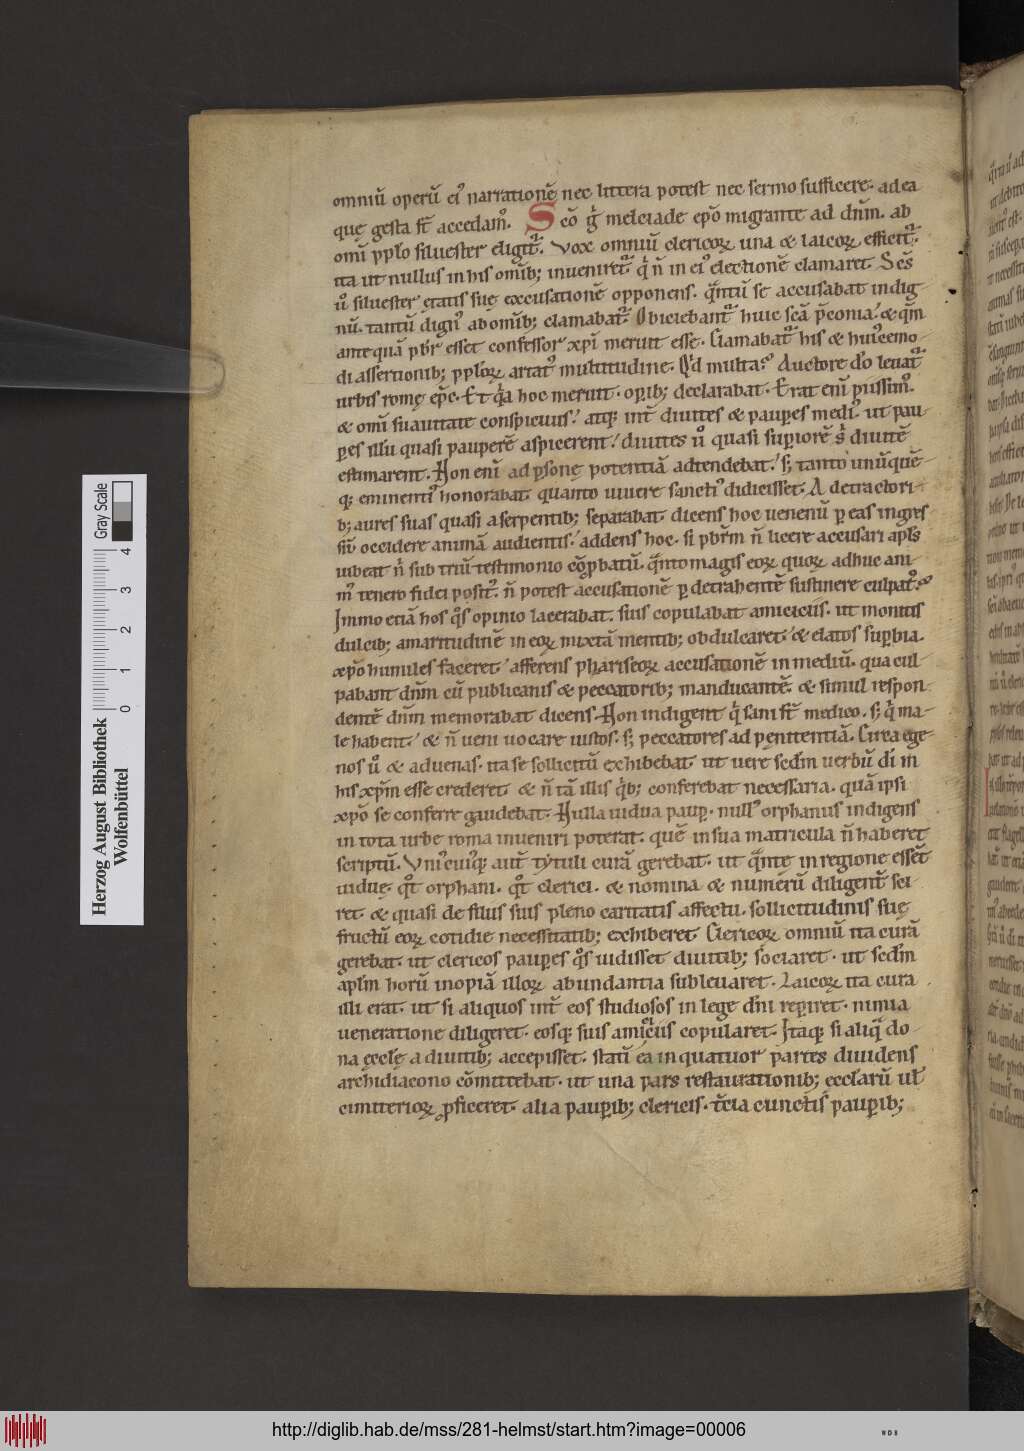 omniũ operũ ei᾽ narrationẽ nec littera potest nec sermo sufficere. ad ea
quę gesta st̃ accedam᾽. Sc̃o g̃ melciade epõ migrante ad dñm. ab
om̃i pp̃lo siluester eligit᷑. Vox omniũ clericoꝝ una & laicoꝝ efficit᷑.
ita ut nullus in his om̃ib; inueniret᷑ q̃ ñ in ei᾽ electionẽ clamaret. Sc̃s
ũ siluester ętatis suę excusationẽ opponens. q̃ntũ se accusabat indig
nũ. tantũ dign᾽ ab om̃ib; clamabat᷑. Obiciebant᷑ huic sc̃a p̃conia. & q̃m
antequã pbr̃ esset confessor xp̃i meruit esse. Clamabat᷑ his & hui᾽cemo
di assertionib; pp̃loꝝ artat᾽ multitudine. Qd multa? Auctore dõ leuat᷑
urbis romę ep̃c. Et q̃a hoc meruit. oꝑib; declarabat. Erat eñi piissim᾽.
& om̃i suauitate conspicuus. atq; int̃ diuites & pauꝑes medi᾽. ut pau
ꝑes illũ quasi pauperẽ aspicerent. diuites ũ quasi suꝑiorẽ s̃ diuitẽ
estimarent. Non enĩ ad ꝑsonę potentiã adtendebat. s; tanto unũquẽ
q; eminenti᾽ honorabat. quanto uiuere sancti᾽ didicisset. A detractori
b; aures suas quasi a serpentib; separabat. dicens hoc uenenũ ꝑ eas ingres
sũ. occidere animã audientis. addens hoc. si pbr̃m ñ licere accusari apl̃s
iubeat ñ sub triũ testimonio cõprobatũ. q̃nto magis eoꝝ quoꝝ adhuc ani
m᾽ tenero fidei posit᾽. ñ potest accusationẽ ꝑ detrahentẽ sustinere culpat᾽.
Immo etiã hos q̃s opinio lacerabat. suis copulabat amicicus. ut monitis
dulcib; amaritudinẽ in eoꝝ mixtã mentib; obdulcaret. & elatos suꝑbia.
xp̃o humiles faceret. afferens phariseoꝝ accusationẽ in mediũ. qua cul
pabant dñm cũ publicanis & peccatorib; manducantẽ. & simul respon
dentẽ dñm memorabat dicens. Non indigent q̃ sani st̃ medico. s; q̃ ma
le habent. & ñ ueni uocare iustos. s; peccatores ad pęnitentiã. Circa ege
nos ũ & aduenas. ita se sollicitũ exhibebat ut uere sedm̃ uerbũ dĩ in
his xp̃m esse crederet & ñ tã illis q̃b; conferebat necessaria. quã ipsi
xp̃o se conferre gaudebat. Nulla uidua paup̃. null᾽ orphanus indigens
in tota urbe roma inueniri poterat. quẽ in sua matricula ñ haberet
scriptũ. Vni᾽cui᾽q; aut̃ tytuli curã gerebat. ut q̃nte in regione essẽt
uiduę. q̃t orphani. q̃t clerici. & nomina & numerũ diligent̃ sci
ret. & quasi de filiis suis pleno caritatis affectu. sollicitudinis suę
fructũ eoꝝ cotidie necessitatib; exhiberet. Clericoꝝ omniũ ita curã
gerebat. ut clericos pauꝑes q̃s uidisset diuitib; sociaret. ut sedm̃
aplm̃ horũ inopiã illoꝝ abundantia subleuaret. Laicoꝝ ita cura
illi erat. ut si aliquos int̃ eos studiosos in lege dñi reꝑiret. nimia
ueneratione diligeret. eosq; suis amicus copularet. Itaq; si aliq̃ do
na ęcclę a diuitib; accepisset. statũ ea in quatuor partes diuidens
archidiacono cõmittebat. ut una pars restaurationib; ecclarũ ul̃
cimiterioꝝ ꝓficeret. alia pauꝑib; clericis. t̃cia cunctis pauꝑib;
Herzog August Bibliothek
Wolfenbüttel
0 1 2 3 4
Gray Scale
http://diglib.hab.de/mss/281-helmst/start.htm?image=00006